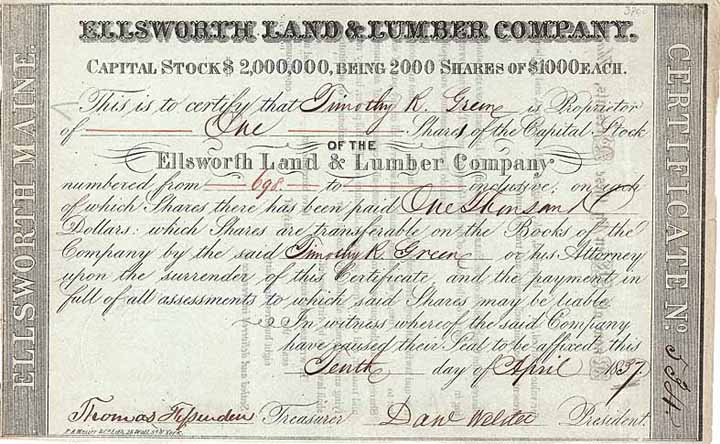 ELLSWORTH LAND & LUMBER COMPANY.
CAPITAL STOCK $ 2,000,000, BEING 2000 SHARES OF $1000 EACH.
This is to certify that Timothy R. Green is Proprietor
of One Shares of the Capital Stock
OF THE
Ellsworth Land & Lumber Company
numbered from 698 to inclusive, on each
of which Shares there has been paid One Thousand
Dollars: which Shares are transferable on the Books of the
Company by the said Timothy R. Green or his Attorney
upon the surrender of this Certificate, and the payment in
full of all assessments to which said Shares may be liable
In witness whereof the said Company
have caused their Seal to be affixed, this
Tenth day of April 1837
Thomas Fessenden Treasurer Danl Webster President.
ELLSWORTH MAINE.
CERTIFICATE No. 534